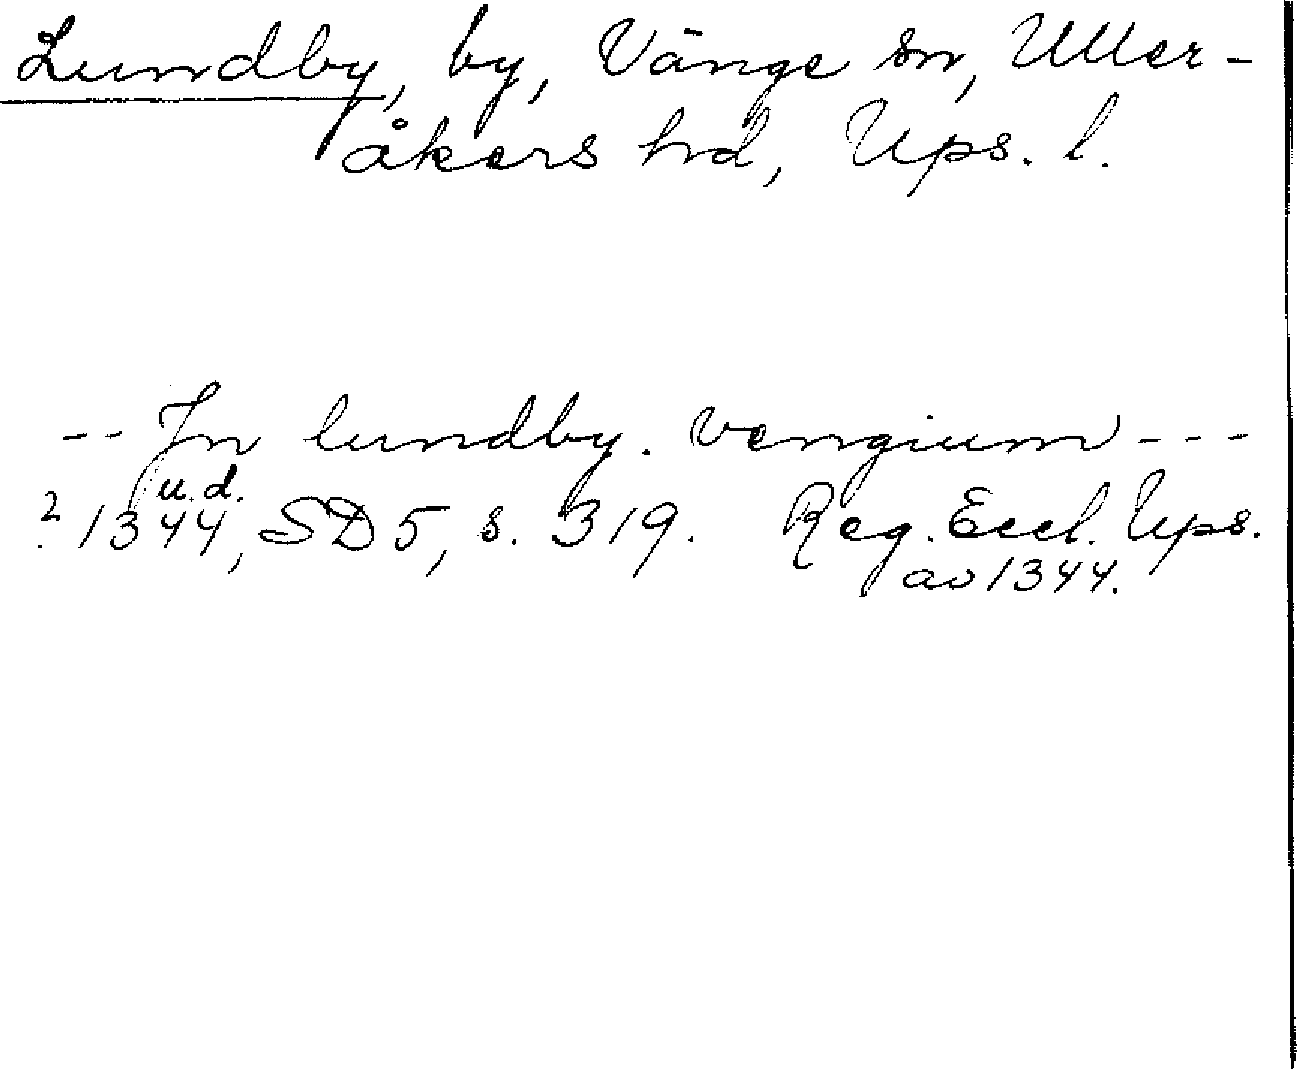 Lundby, by, Vänge sn, Uller-
åkers hd, Ups. l.
-- Jn lundby. vengium ---
u.d.
? 1344, SD 5, s. 319. Reg. Eccl. Ups.
av 1344.